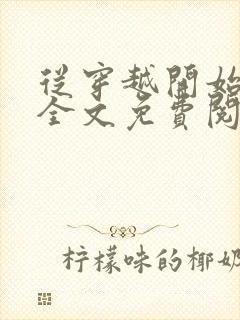 從穿越開始
全文免費閱
柠檬味的椰奶